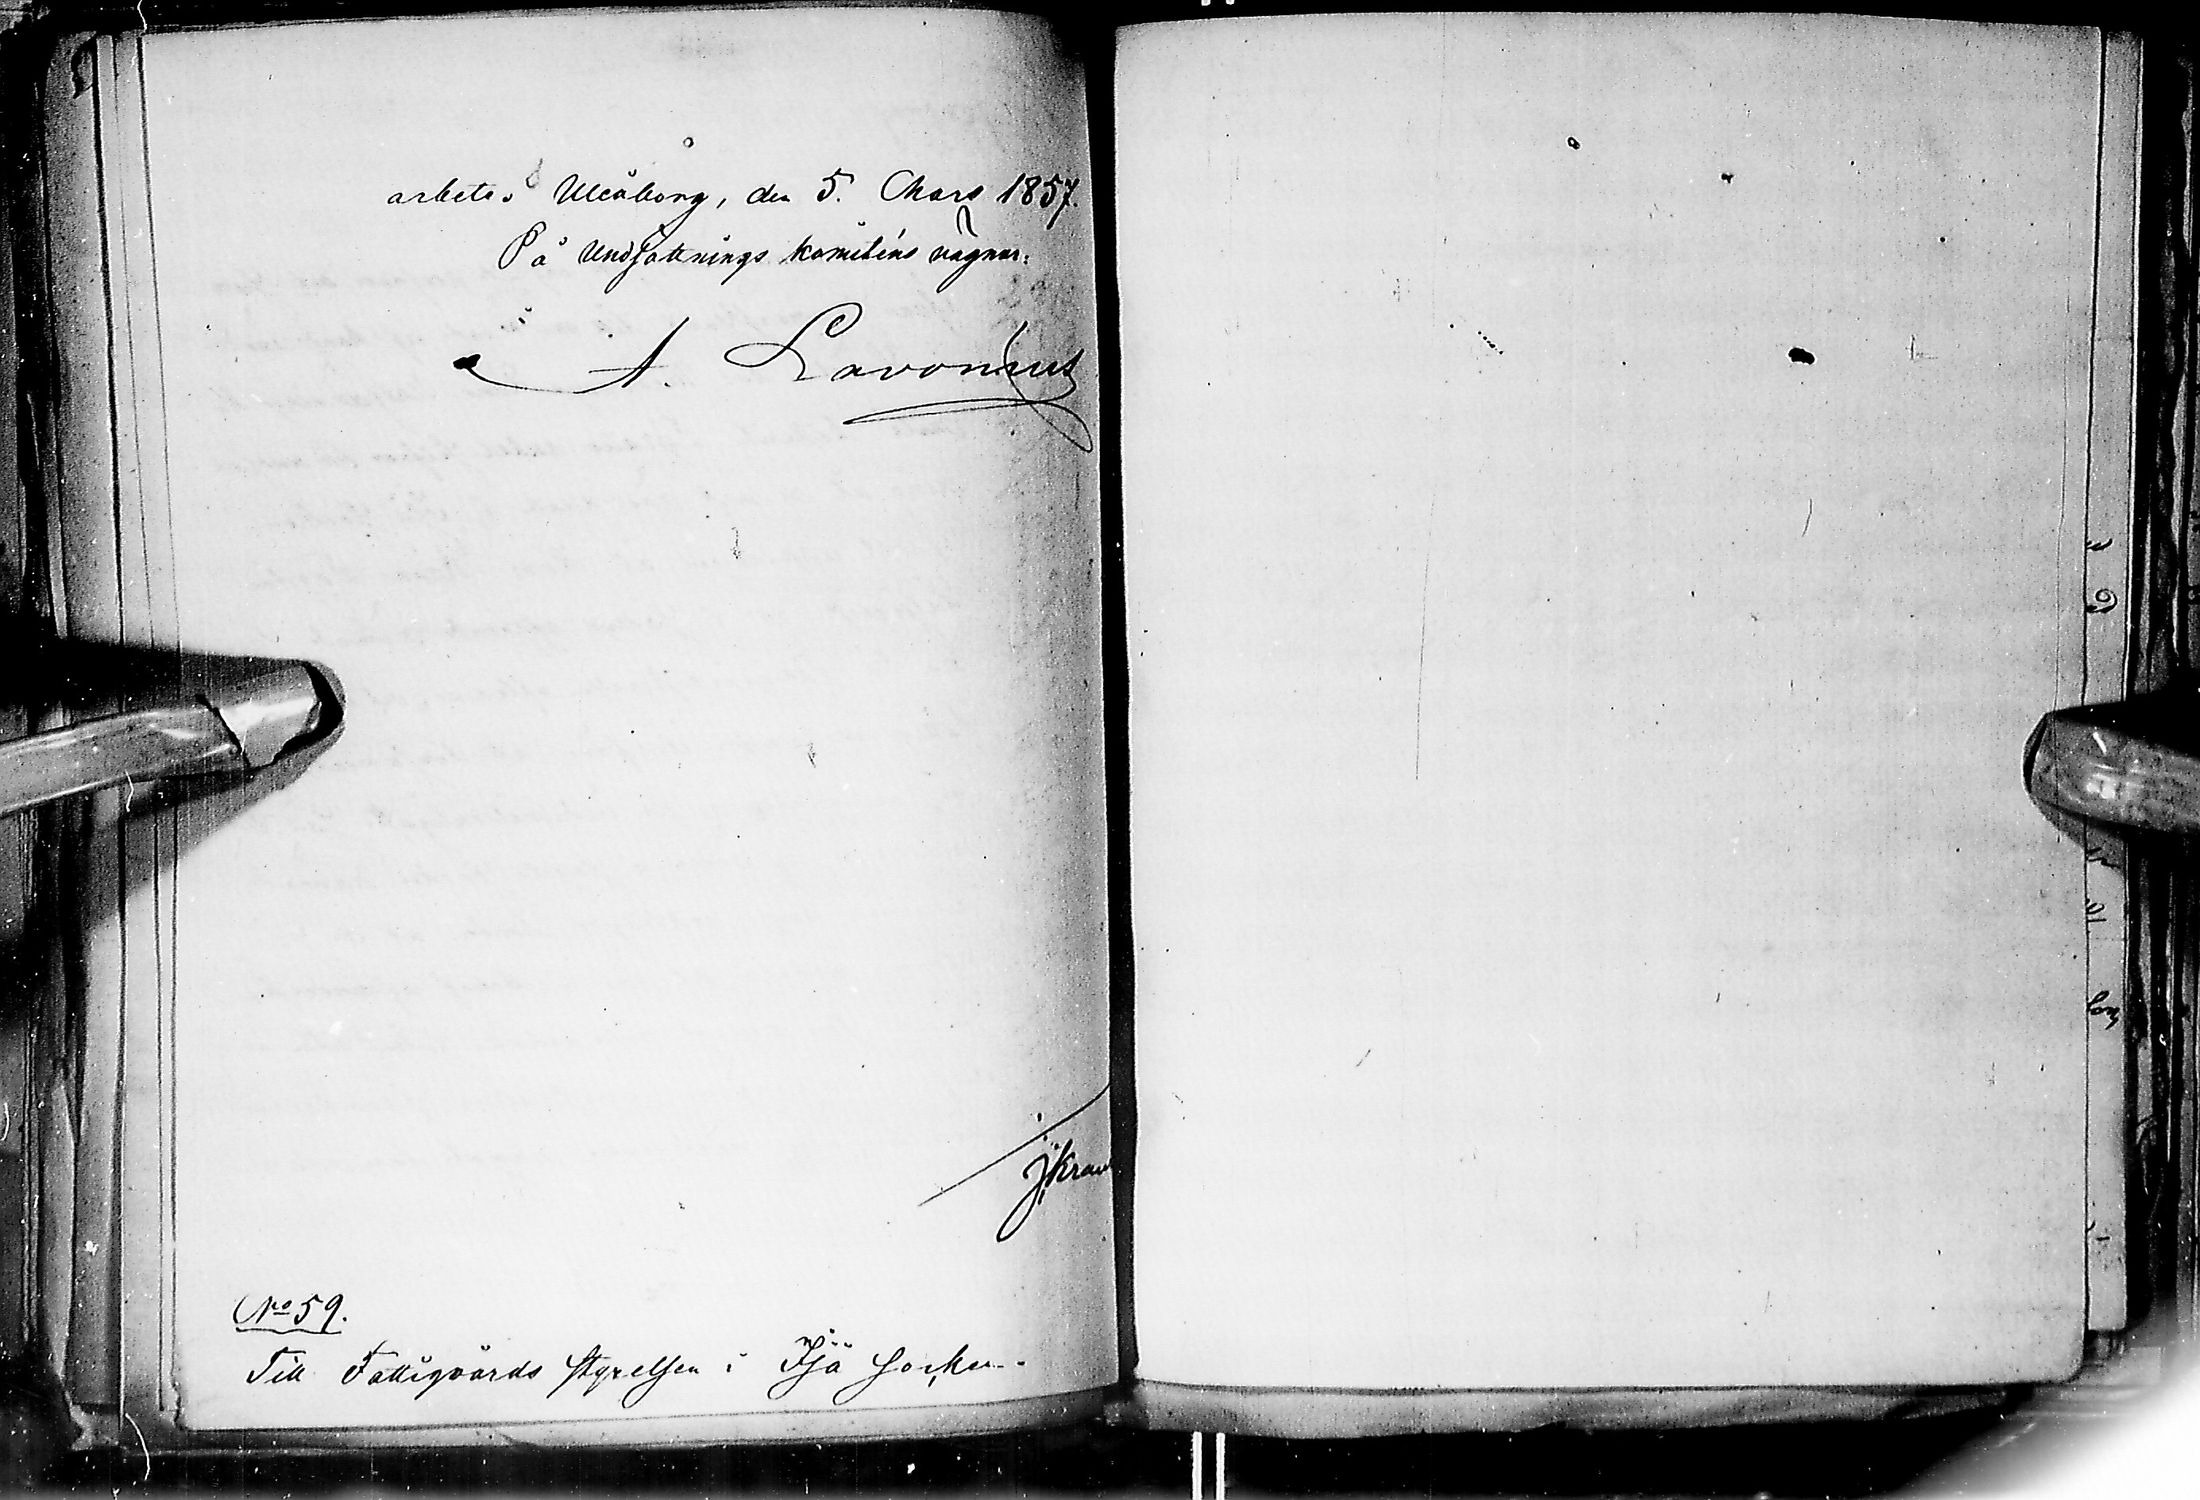 arbete. Uleåborg, den 5. Mars 1857.
På Undsättnings komiténs vägnar:
A. Lavonius
No 59.
Till Fattigvårds styrelsen i Ijå Socken.